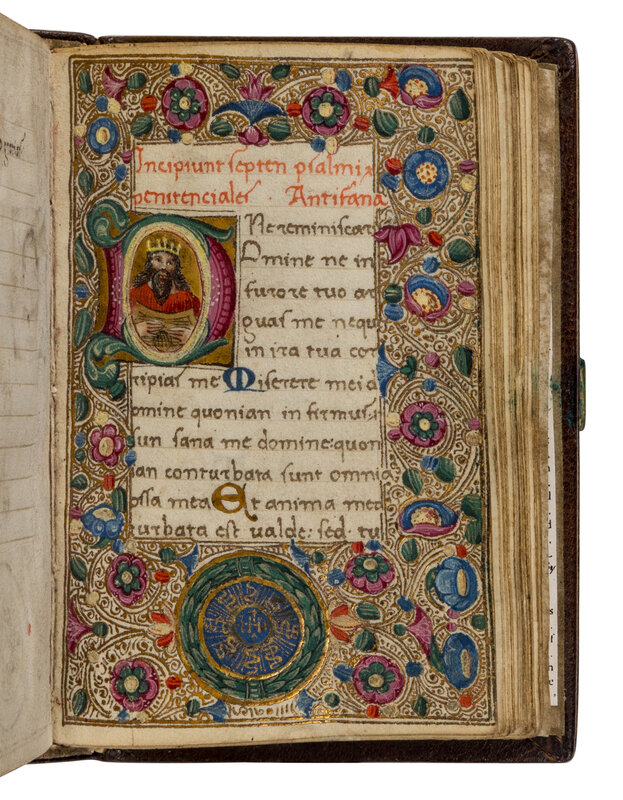 Incipiunt septen psalmi x
penitenciales . Antifana
Ne reminiscaris
Domine ne in
furore tuo ar
guas me nequ
in ira tua cor
ripias me Miserere mei d
omine quonian in firmus s
un sana me domine: quon
ian conturbata sunt omnia
ossa mea Et anima mea
turbata est valde: sed tu